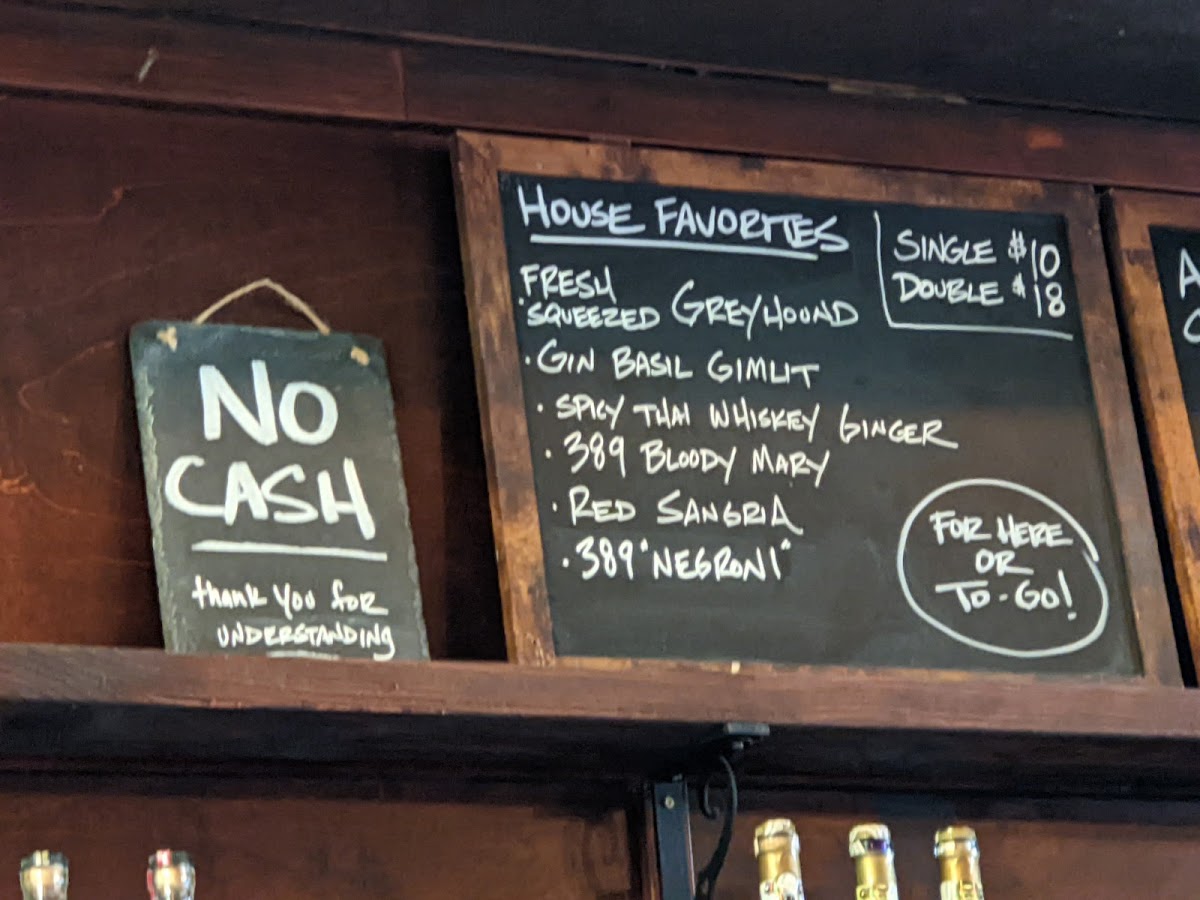 NO
CASH
thank you for
UNDERSTANDING
HOUSE FAVORITES
SINGLE $10
DOUBLE $18
FRESH
· SQUEEZED GREYHOUND
· GIN BASIL GIMLIT
· SPICY THAI WHISKEY GINGER
· 389 BLOODY MARY
· RED SANGRIA
· 389 "NEGRONI"
FOR HERE
OR
TO-GO!